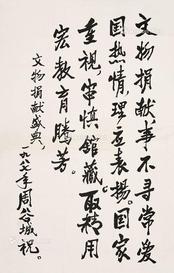 文物捐献，事不寻常。爱
国热情，理应表扬。国家
重视，审慎馆藏。取精用
宏，教育腾芳。
文物捐献盛典，
一九八七年周谷城祝。